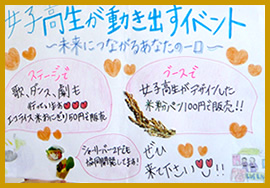 女子高生が動き出すイベント
〜未来につながるあなたの一口〜
ステージで
歌、ダンス、劇も
50円で販売
ブースで
女子高生がデザインした
米粉パン100円で販売!!
シャトレーバースデーでも
協同開発してます!
ぜひ
来て下さい!!